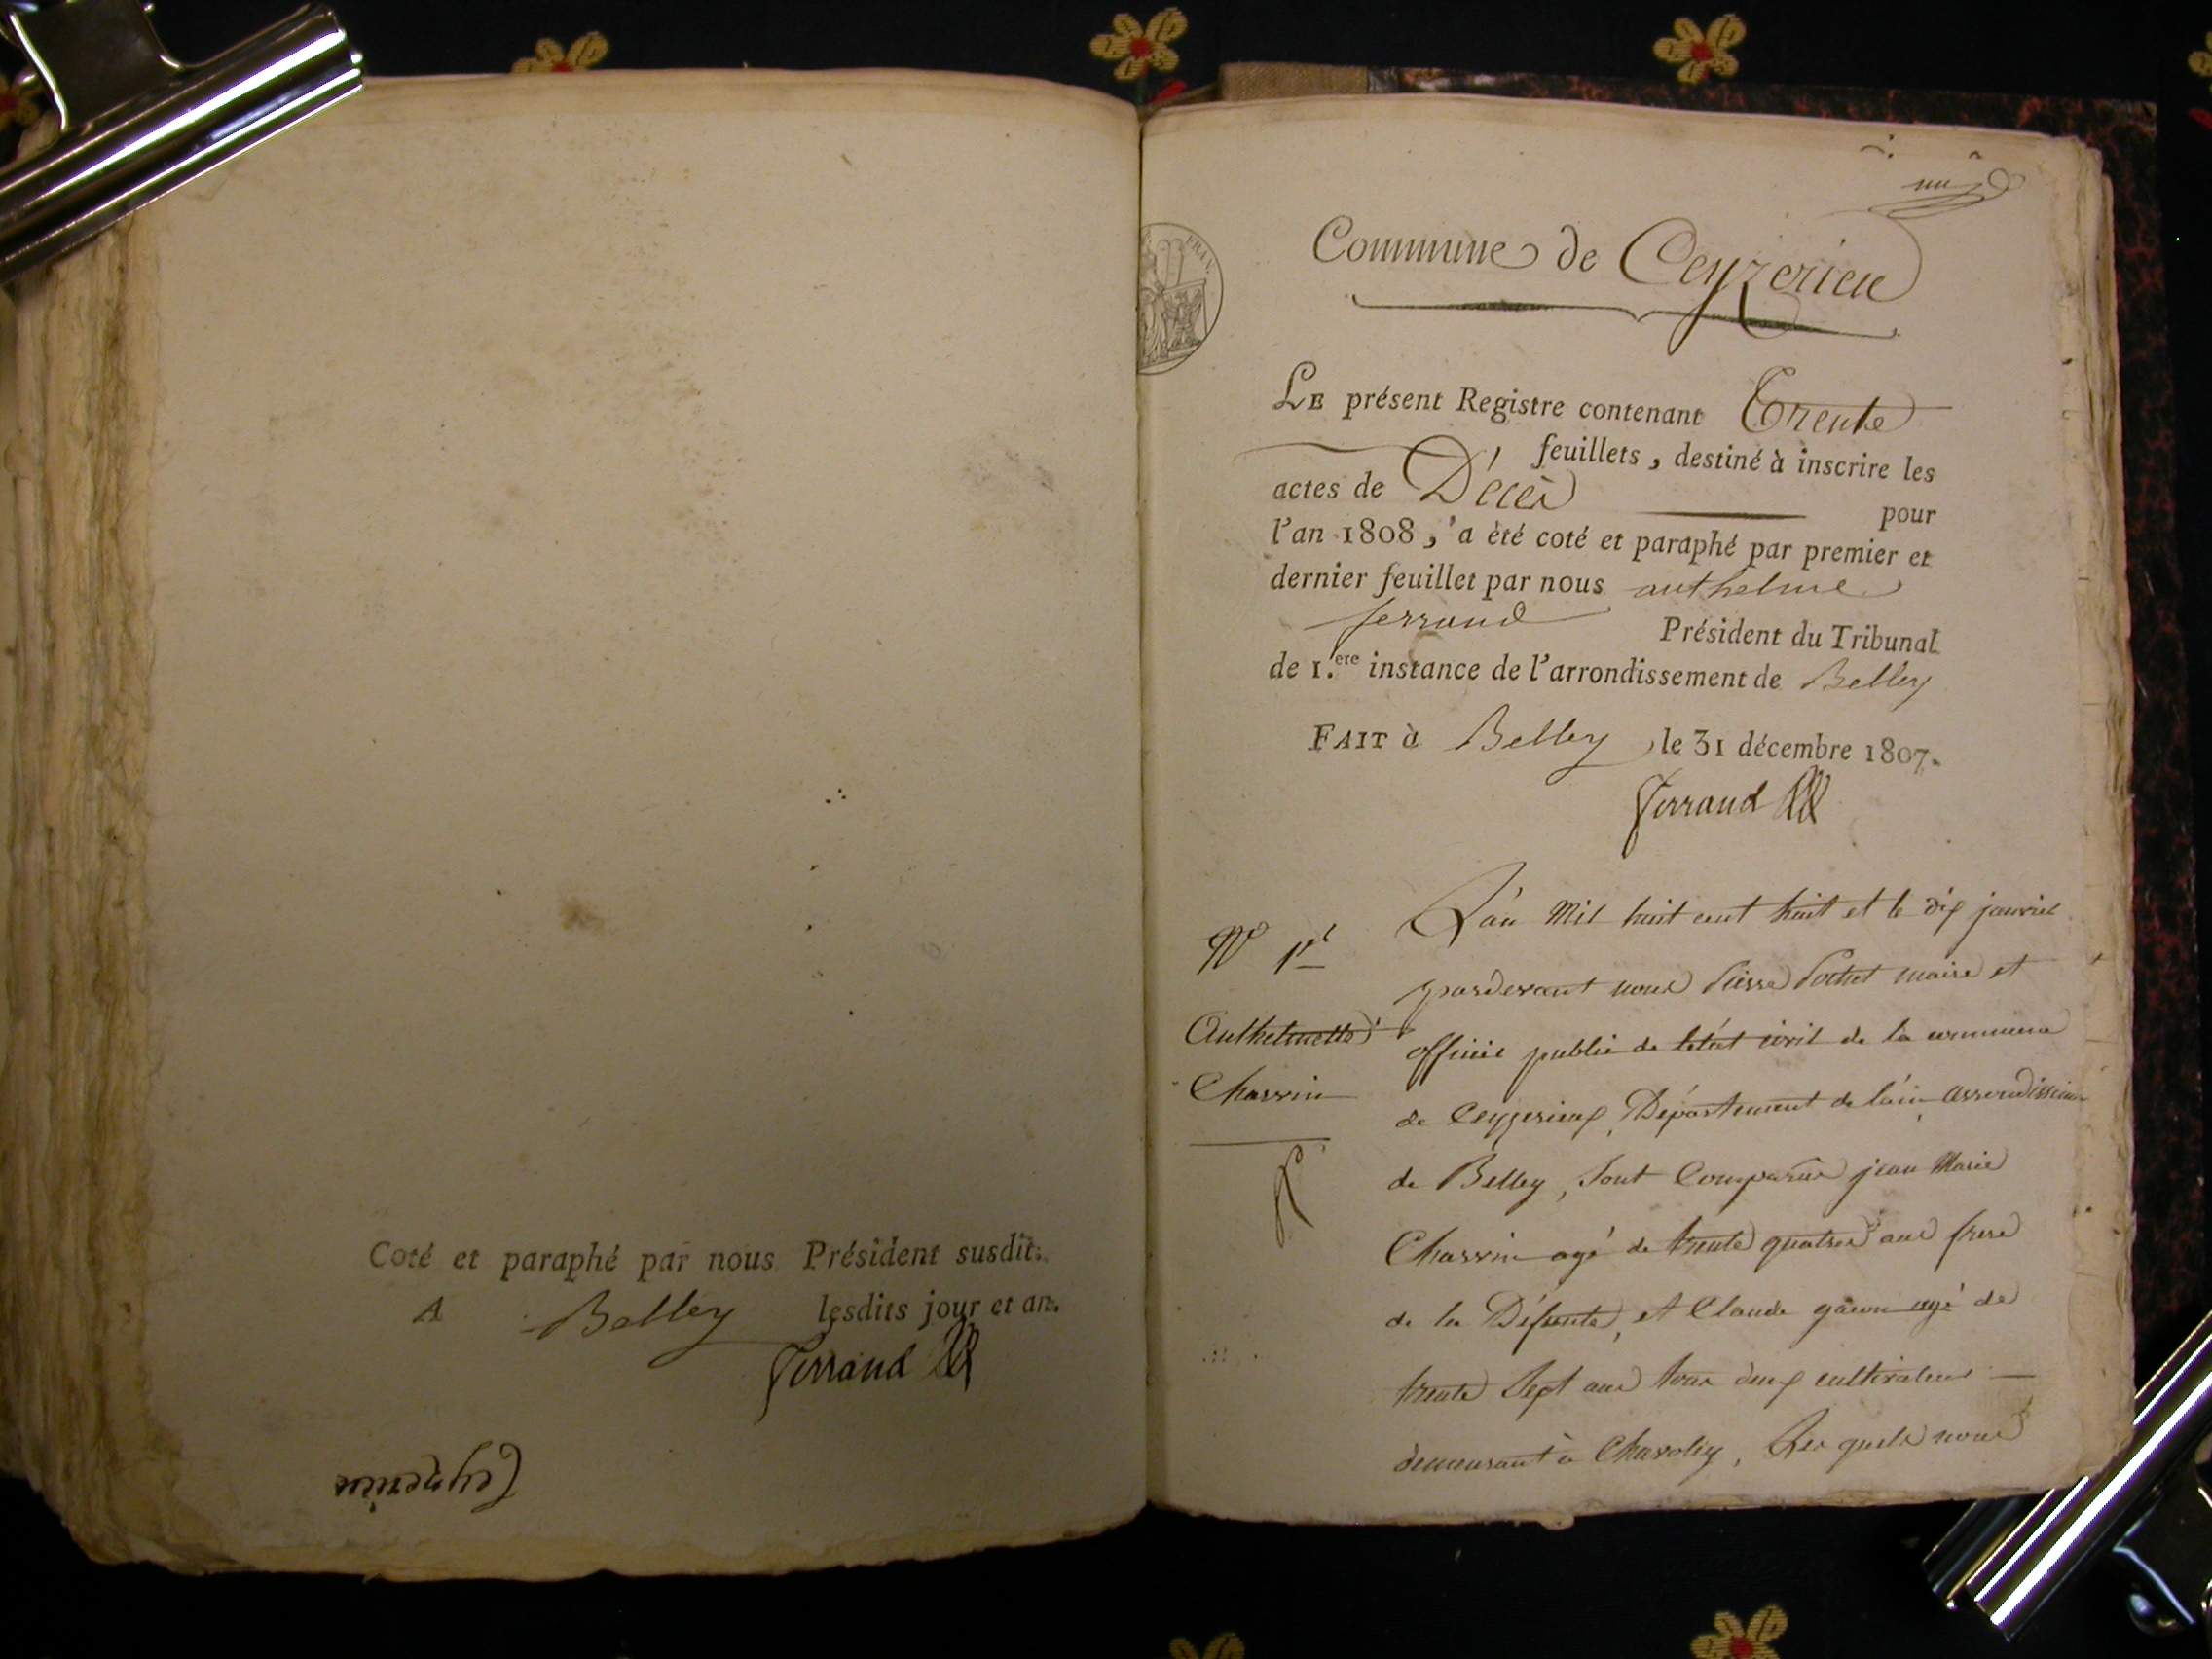 Coté et paraphé par nous Président susdit.
A Belley lesdits jour et an.
Ferrand
Ceyzerieu
FRAN.
un
Commune de Ceyzerieu
LE présent Registre contenant Trente
feuillets, destiné à inscrire les
actes de Décès pour
l'an 1808, a été coté et paraphé par premier et
dernier feuillet par nous anthelme
ferrand Président du Tribunal
de 1.ere instance de l'arrondissement de Belley
FAIT à Belley, le 31 décembre 1807.
Ferrand
N° 1er
Anthelmette
Charvin
L'an Mil huit cent huit et le dix janvier
pardevant nous Pierre Pochet maire et
officié public de letat civil de la commune
de Ceyzerieux, Département de lain, arrondissem
de Belley, sont Comparus jean Marie
Charvin agé de trente quatre ans frere
de la Défunte, et Claude agé de
trente sept ans tous deux cultivateurs
demeurant à Chavoley, Les quels nous